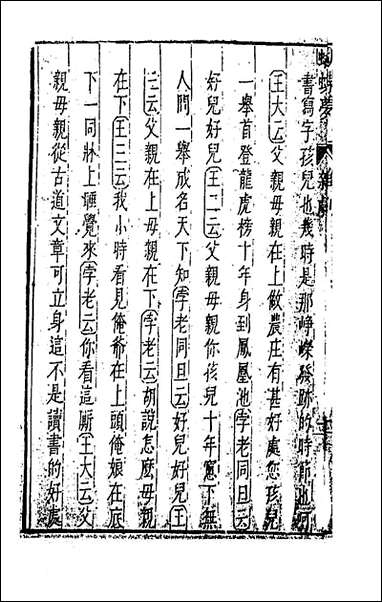 蝴蝶夢　雜劇
書寫字孩兒也幾時是那崢嶸發跡的時節也呵
王大云父親母親在上做農庄有甚好處您孩兒
一舉首登龍虎榜十年身到鳳凰池孛老同旦云
好兒好兒王二云父親母親你孩兒十年窓下無
人問一舉成名天下知孛老同旦云好兒好兒王
三云父親在上母親在下孛老云胡說怎麽母親
在下王三云我小時看見俺爺在上頭俺娘在底
下一同牀上睡覺來孛老云你看這厮王大云父
親母親從古道文章可立身這不是讀書的好處